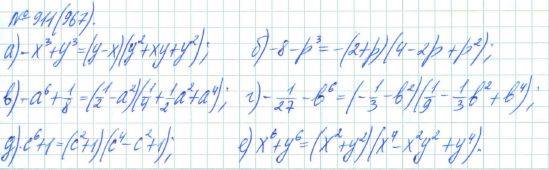 № 911(967).
а) -x³+y³=(y-x)(y²+xy+y²); б) -8-p³=-(2+p)(4-2p+p²);
в) -a⁶+1/8=(1/2-a²)(1/4+1/2a²+a⁴); г) -1/27-b⁶=(-1/3-b²)(1/9-1/3b²+b⁴);
д) c⁶+1=(c²+1)(c⁴-c²+1); е) x⁶+y⁶=(x²+y²)(x⁴-x²y²+y⁴).